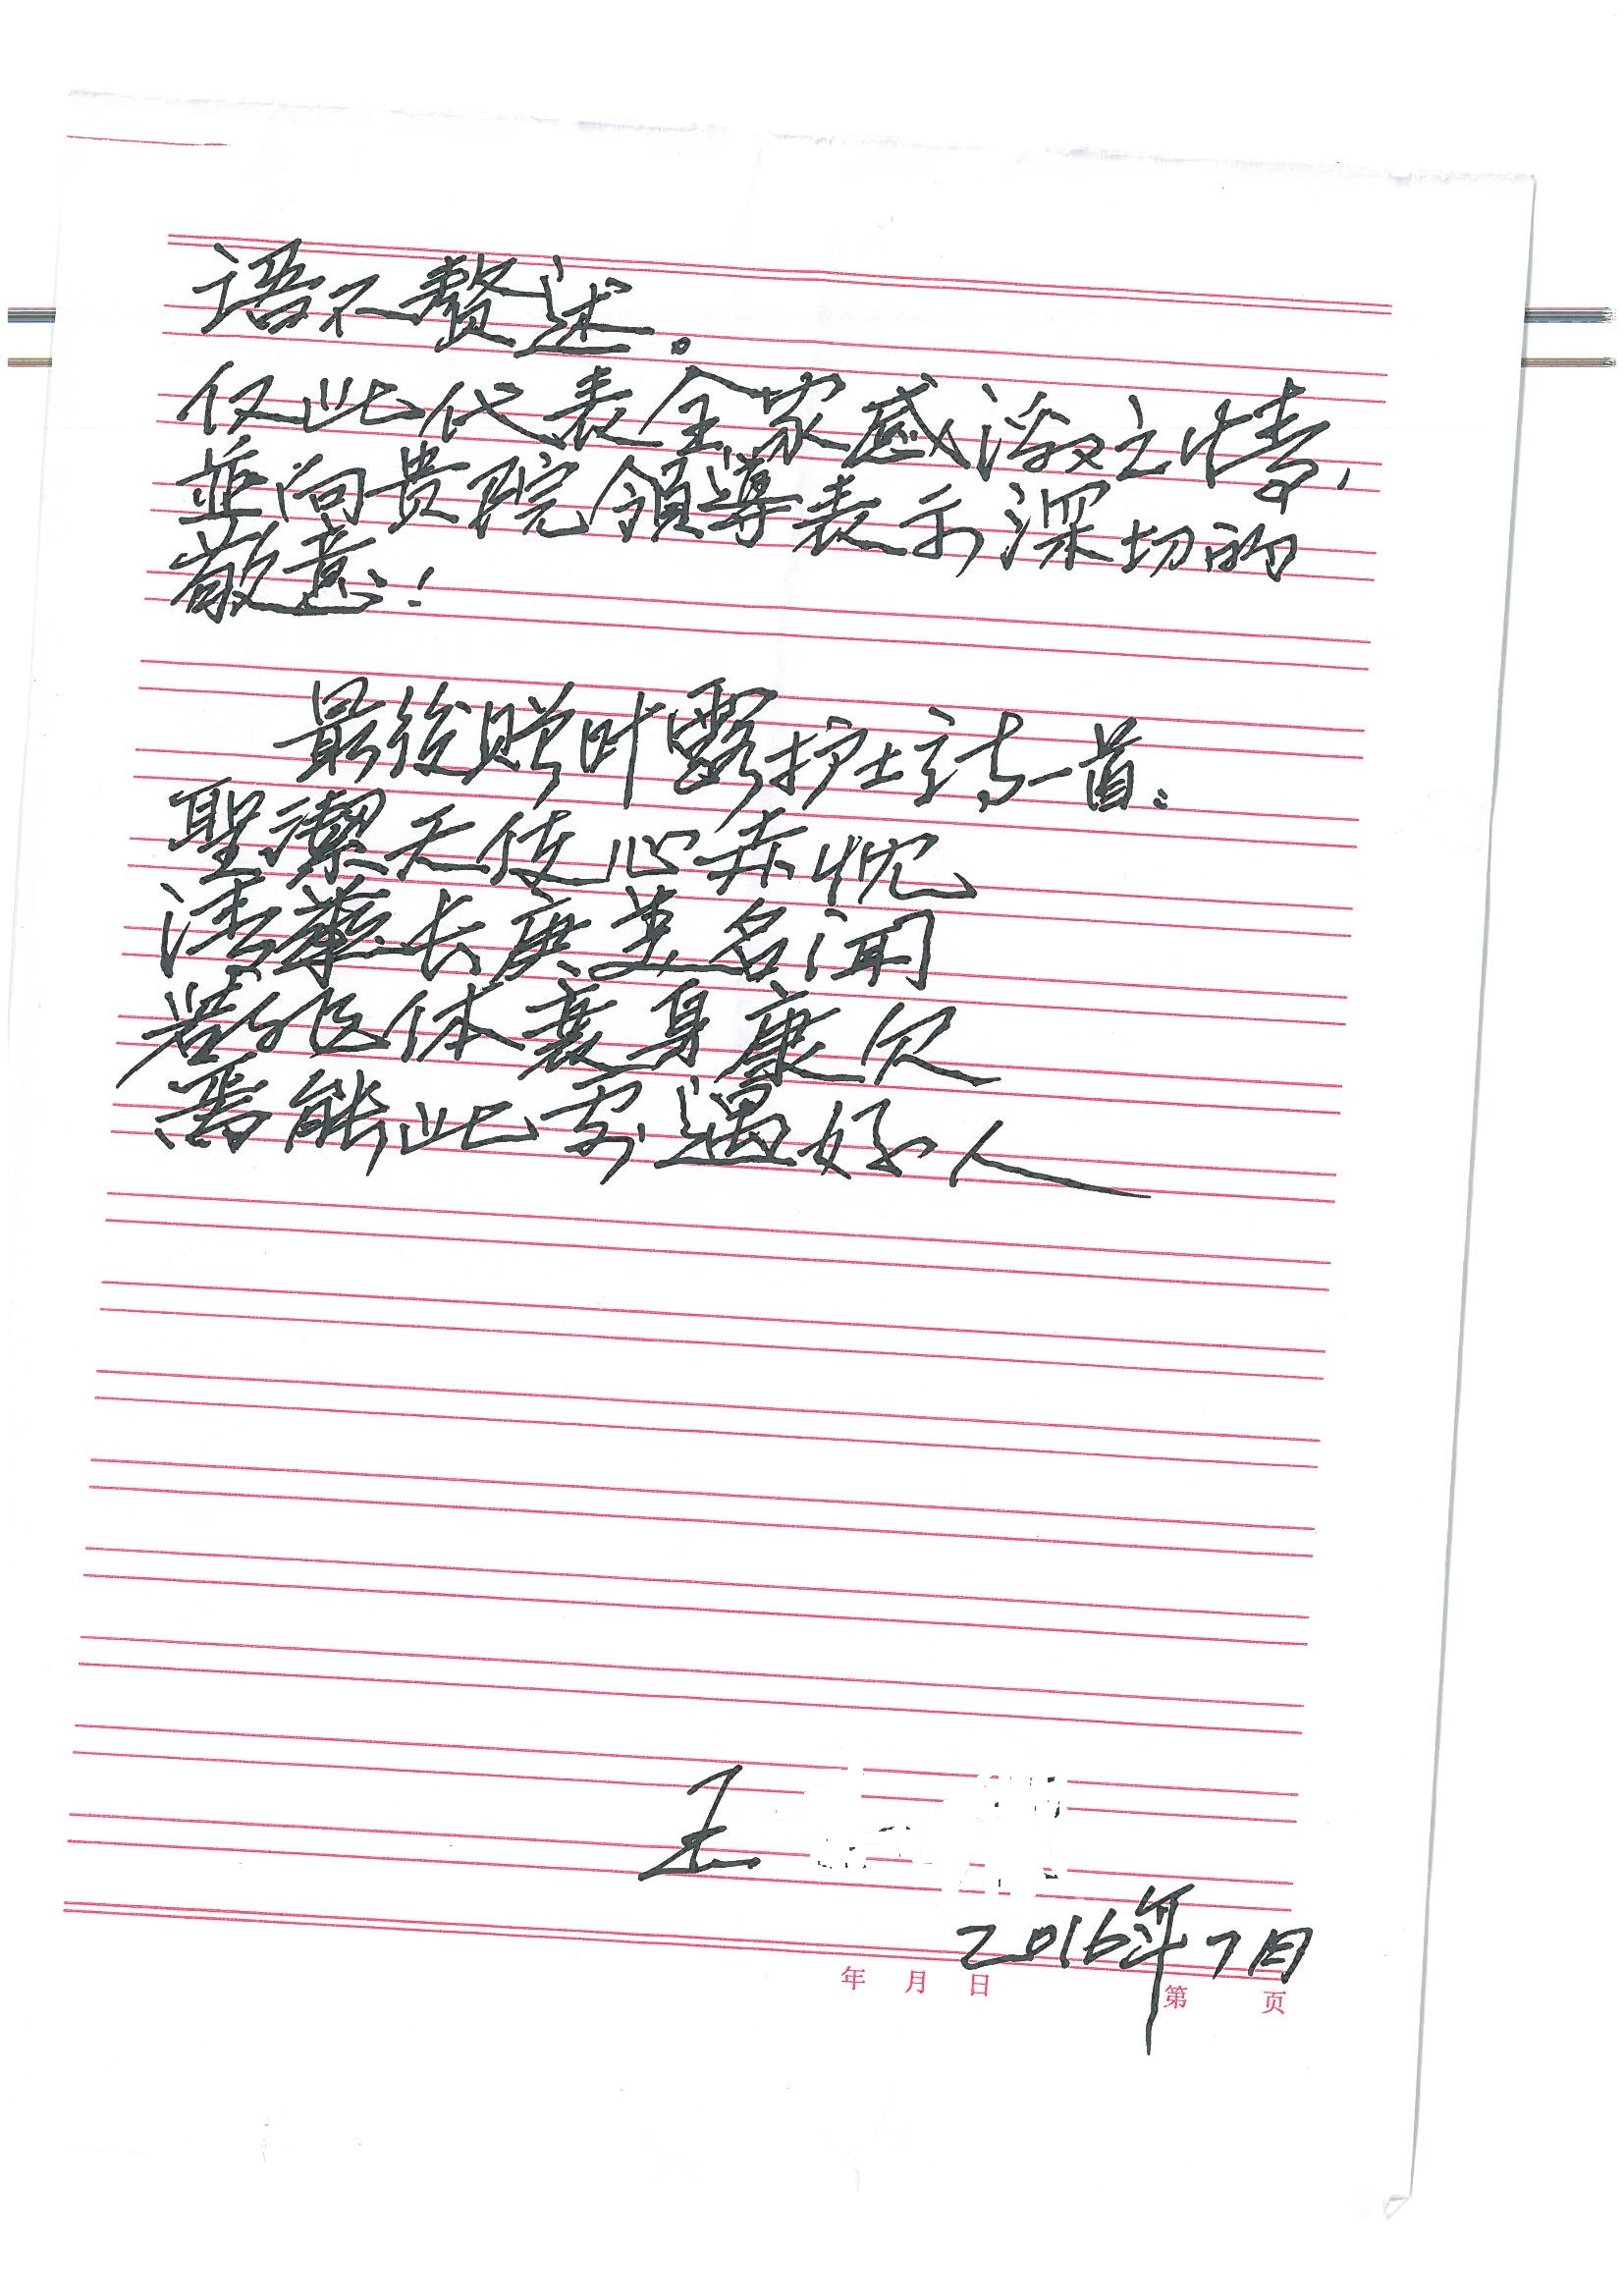 语不赘述。
仅此代表全家感激之情,
並向贵院領導表示深切的
敬意!
最後赠叶露护士诗一首:
聖潔天使心赤忱
清華长庚美名闻
若非体衰身康欠
焉能此处遇好人
王
2016年7月
年 月 日 第 页